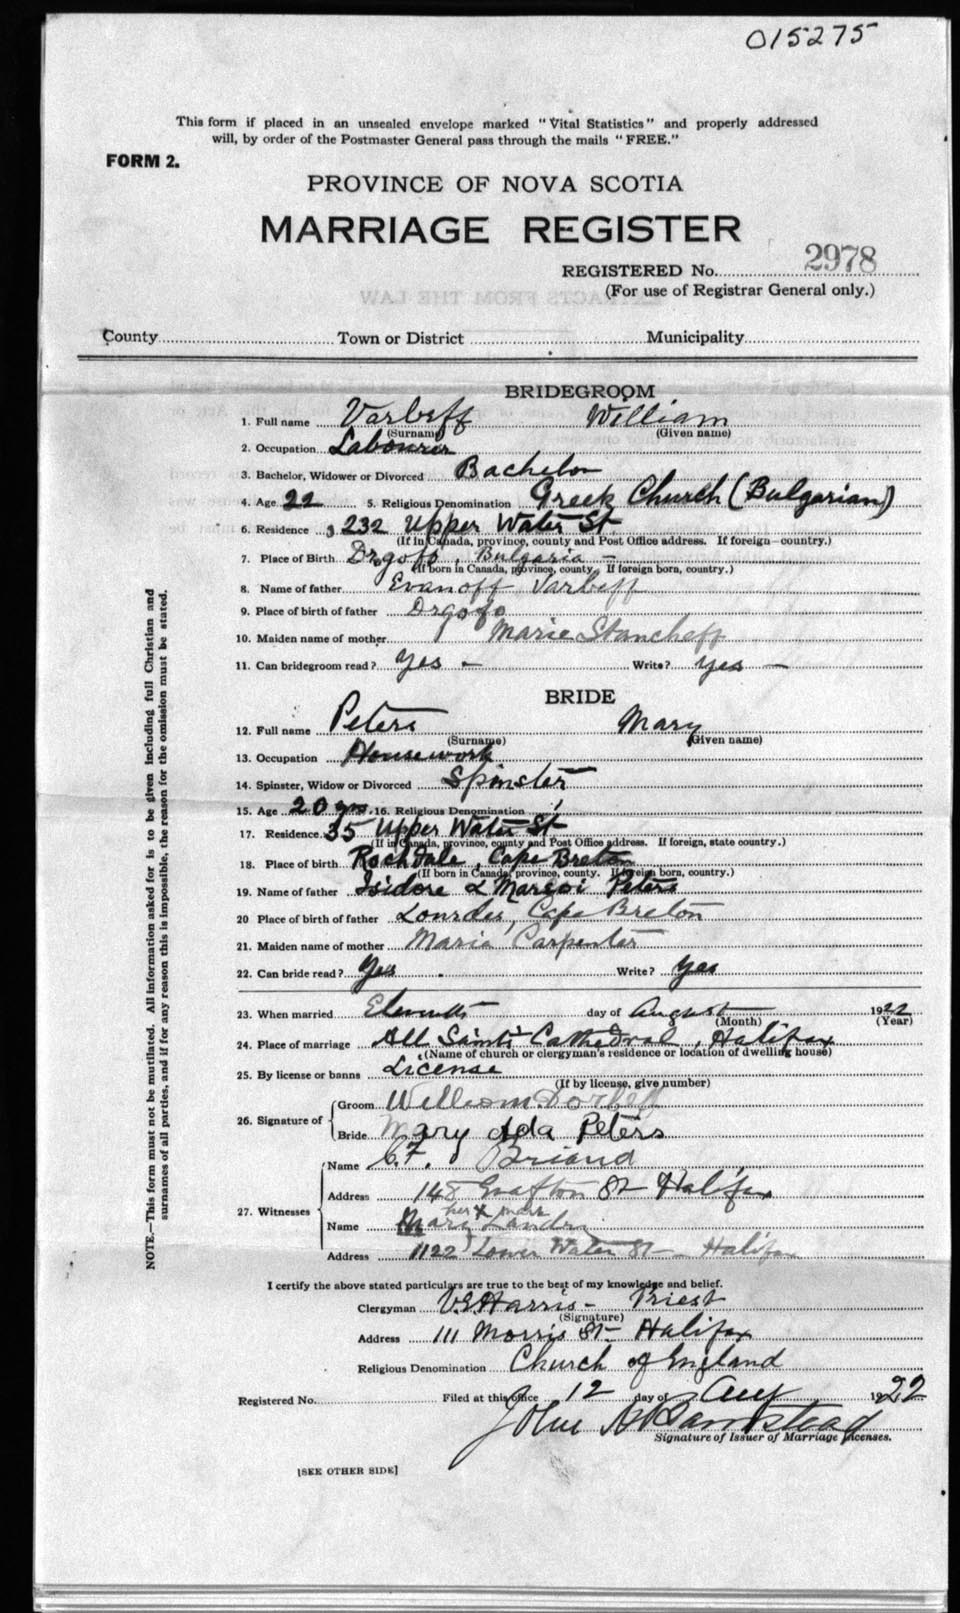 015275
This form if placed in an unsealed envelope marked "Vital Statistics" and properly addressed
will, by order of the Postmaster General pass through the mails "FREE."
FORM 2.
PROVINCE OF NOVA SCOTIA
MARRIAGE REGISTER
REGISTERED No. 2978
(For use of Registrar General only.)
County Town or District Municipality
BRIDEGROOM
1. Full name Varbeff William
(Surname) (Given name)
2. Occupation Labourer
3. Bachelor, Widower or Divorced Bachelor
4. Age 22 5. Religious Denomination Greek Church (Bulgarian)
6. Residence 232 Upper Water St
(If in Canada, province, county and Post Office address. If foreign—country.)
7. Place of Birth Drgofo, Bulgaria —
(If born in Canada, province, county. If foreign born, country.)
8. Name of father Evanoff Varbeff
9. Place of birth of father Drgofo
10. Maiden name of mother Marie Stancheff
11. Can bridegroom read? Yes — Write? Yes —
BRIDE
12. Full name Peters Mary
(Surname) (Given name)
13. Occupation Housework
14. Spinster, Widow or Divorced Spinster
15. Age 20 yrs. 16. Religious Denomination
17. Residence. 35 Upper Water St
(If in Canada, province, county and Post Office address. If foreign, state country.)
18. Place of birth Rochdale, Cape Breton
(If born in Canada, province, county. If foreign born, country.)
19. Name of father Isidore Peters
20 Place of birth of father Lourdes, Cape Breton
21. Maiden name of mother Maria Carpenter
22. Can bride read? Yes Write? Yes
23. When married Eleventh day of August 1922
(Month) (Year)
24. Place of marriage All Saints Cathedral, Halifax
(Name of church or clergyman's residence or location of dwelling house)
25. By license or banns License
(If by license, give number)
26. Signature of Groom William
Bride Mary Ada Peters
27. Witnesses Name C.F. Briand
Address 148 Grafton St Halifax
her X mark
Name Mary Landry
Address 1122 Lower Water St — Halifax
I certify the above stated particulars are true to the best of my knowledge and belief.
Clergyman V.E. Harris — Priest
(Signature)
Address 111 Morris St — Halifax
Religious Denomination Church of England
Registered No. Filed at this office 12 day of Aug 1922
John A Barnstead
Signature of Issuer of Marriage Licenses.
[SEE OTHER SIDE]
NOTE.—This form must not be mutilated. All information asked for is to be given including full Christian and
surnames of all parties, and if for any reason this is impossible, the reason for the omission must be stated.